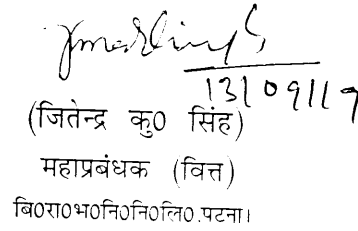 13/09/19
(जितेन्द्र कु0 सिंह)
महाप्रबंधक (वित्त)
बि0रा0भ0नि0नि0लि0.पटना।